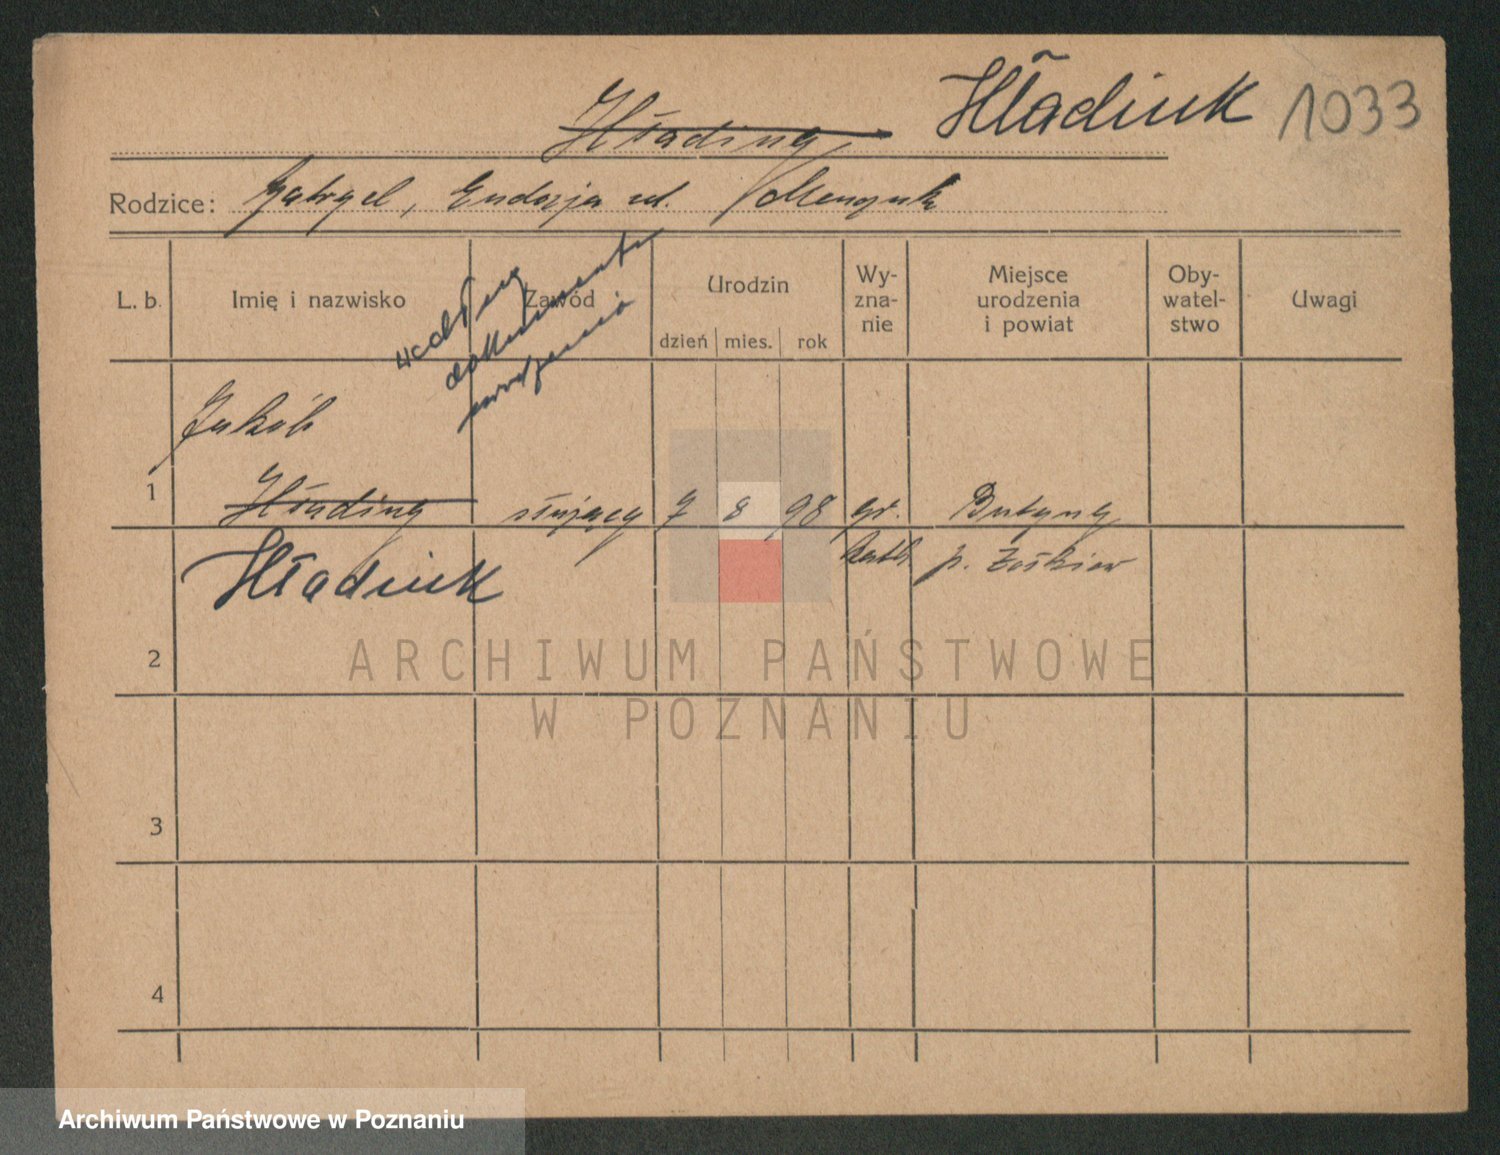 Hłading Hładiuk 1033
Rodzice: Gabryel, Eudozja ur.
L. b. Imię i nazwisko Zawód Urodzin Wy-zna-nie Miejsce urodzenia i powiat Oby-watel-stwo Uwagi
dzień mies. rok
według
dokumentu
urodzenia
Jakób
1 Hłading służący 7 8 98 gr. Butyny
Hładiuk kath. p. Żółkiew
2
ARCHIWUM PAŃSTWOWE
W POZNANIU
3
4
Archiwum Państwowe w Poznaniu